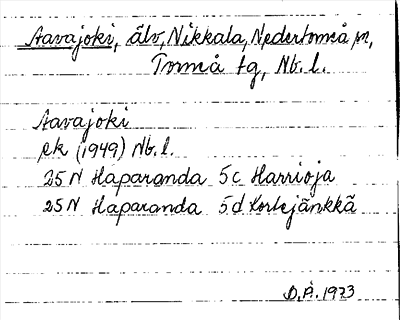 Aavajoki, älv, Nikkala, Nedertorneå sn,
Torneå tg, Nb. l.
Aavajoki
ek (1949) Nb. l.
25 N Haparanda 5c Harrioja
25 N Haparanda 5d Kortejänkkä
D.Å. 1973